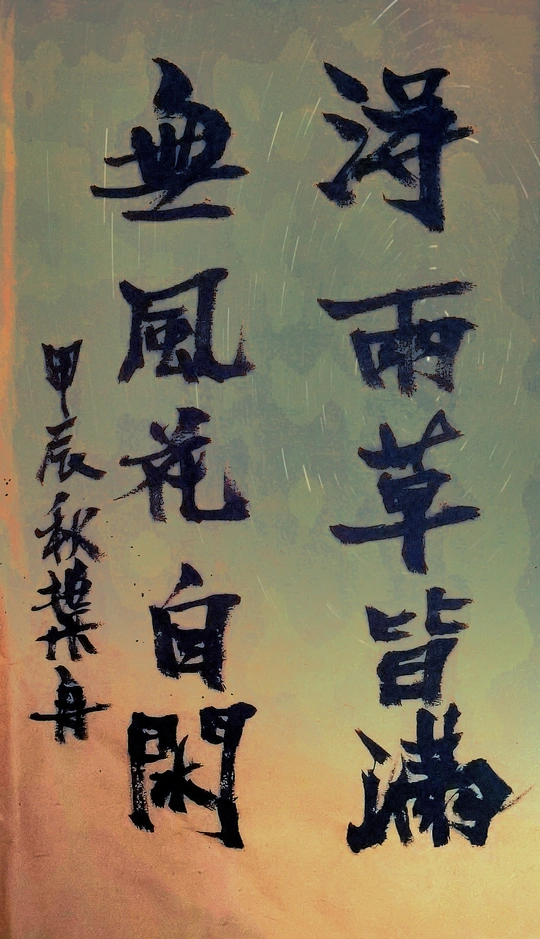 得雨草皆滿
無風花自閑
甲辰秋葉舟